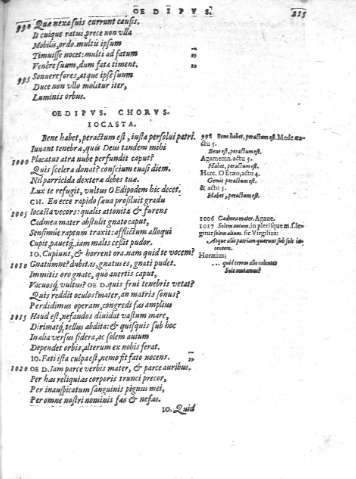 OEDIPVS.
215
990 Quæ nexa suis currunt causis.
It cuique ratus, prece non ulla
Mobilis, ordo. multis ipsum
Timuisse nocet: multi ad fatum
Venere suum, dum fata timent.
995 Sonuere fores, atque ipse suum
Duce non ullo molitur iter,
Luminis orbus.
OEDIPVS. CHORVS.
IOCASTA.
Bene habet, peractum est, iusta persolui patri.
Iuuant tenebræ. quis Deus tandem mihi
1000 Placatus atra nube perfundit caput?
Quis scelera donat? conscium euasi diem.
Nil parricida dexteræ debes tuæ.
Lux te refugit, vultus Oedipodem hic decet.
CH. En ecce rapido sæua prosiluit gradu
1005 Iocasta vecors: qualis attonita & furens
Cadmea mater abstulit gnato caput,
Sensitue raptum traxit: afflictum alloqui
Cupit, pauet. iam malis cessit pudor.
IO. Cupiunt, & horrent ora. nam quid te vocem?
1010 Gnatumne? dubitas. gnatus es, gnati pudet.
Immitis ero gnate, quo auertis caput,
Vacuosq́; vultus? OED. quis frui tenebris vetat?
Quis reddit oculos? mater, en matris sonus?
Perdidimus operam, congredi fas amplius
1015 Haud est, nefandos diuidat vastum mare,
Dirimatq́; tellus abdita: & quisquis sub hoc
In alia versus sidera, ac solem auium
Dependet orbis, alterum ex nobis ferat.
IO. Fati ista culpa est, nemo fit fato nocens.
1020 OED. Iam parce verbis mater, & parce auribus.
Per has reliquias corporis trunci precor,
Per inauspicatum sanguinis pignus mei,
Per omne nostri nominis fas & nefas.
IO. Quid
998 Bene habet, peractum est. Medeæ actu 5.
Bene est, peractum est.
Agamemn. actu 5.
Habet, peractum est.
Herc. Oetæo, actu 4.
Gemis peractum est.
& actu 5.
Habet, peractum est.
1006 Cadmea mater. Agaue.
1017 Solem auium.
sic Virgilius:
Atque alio patriam quærunt sub sole iacentem.
Horatius:
... quid terras alio calentes
Sole mutamus?